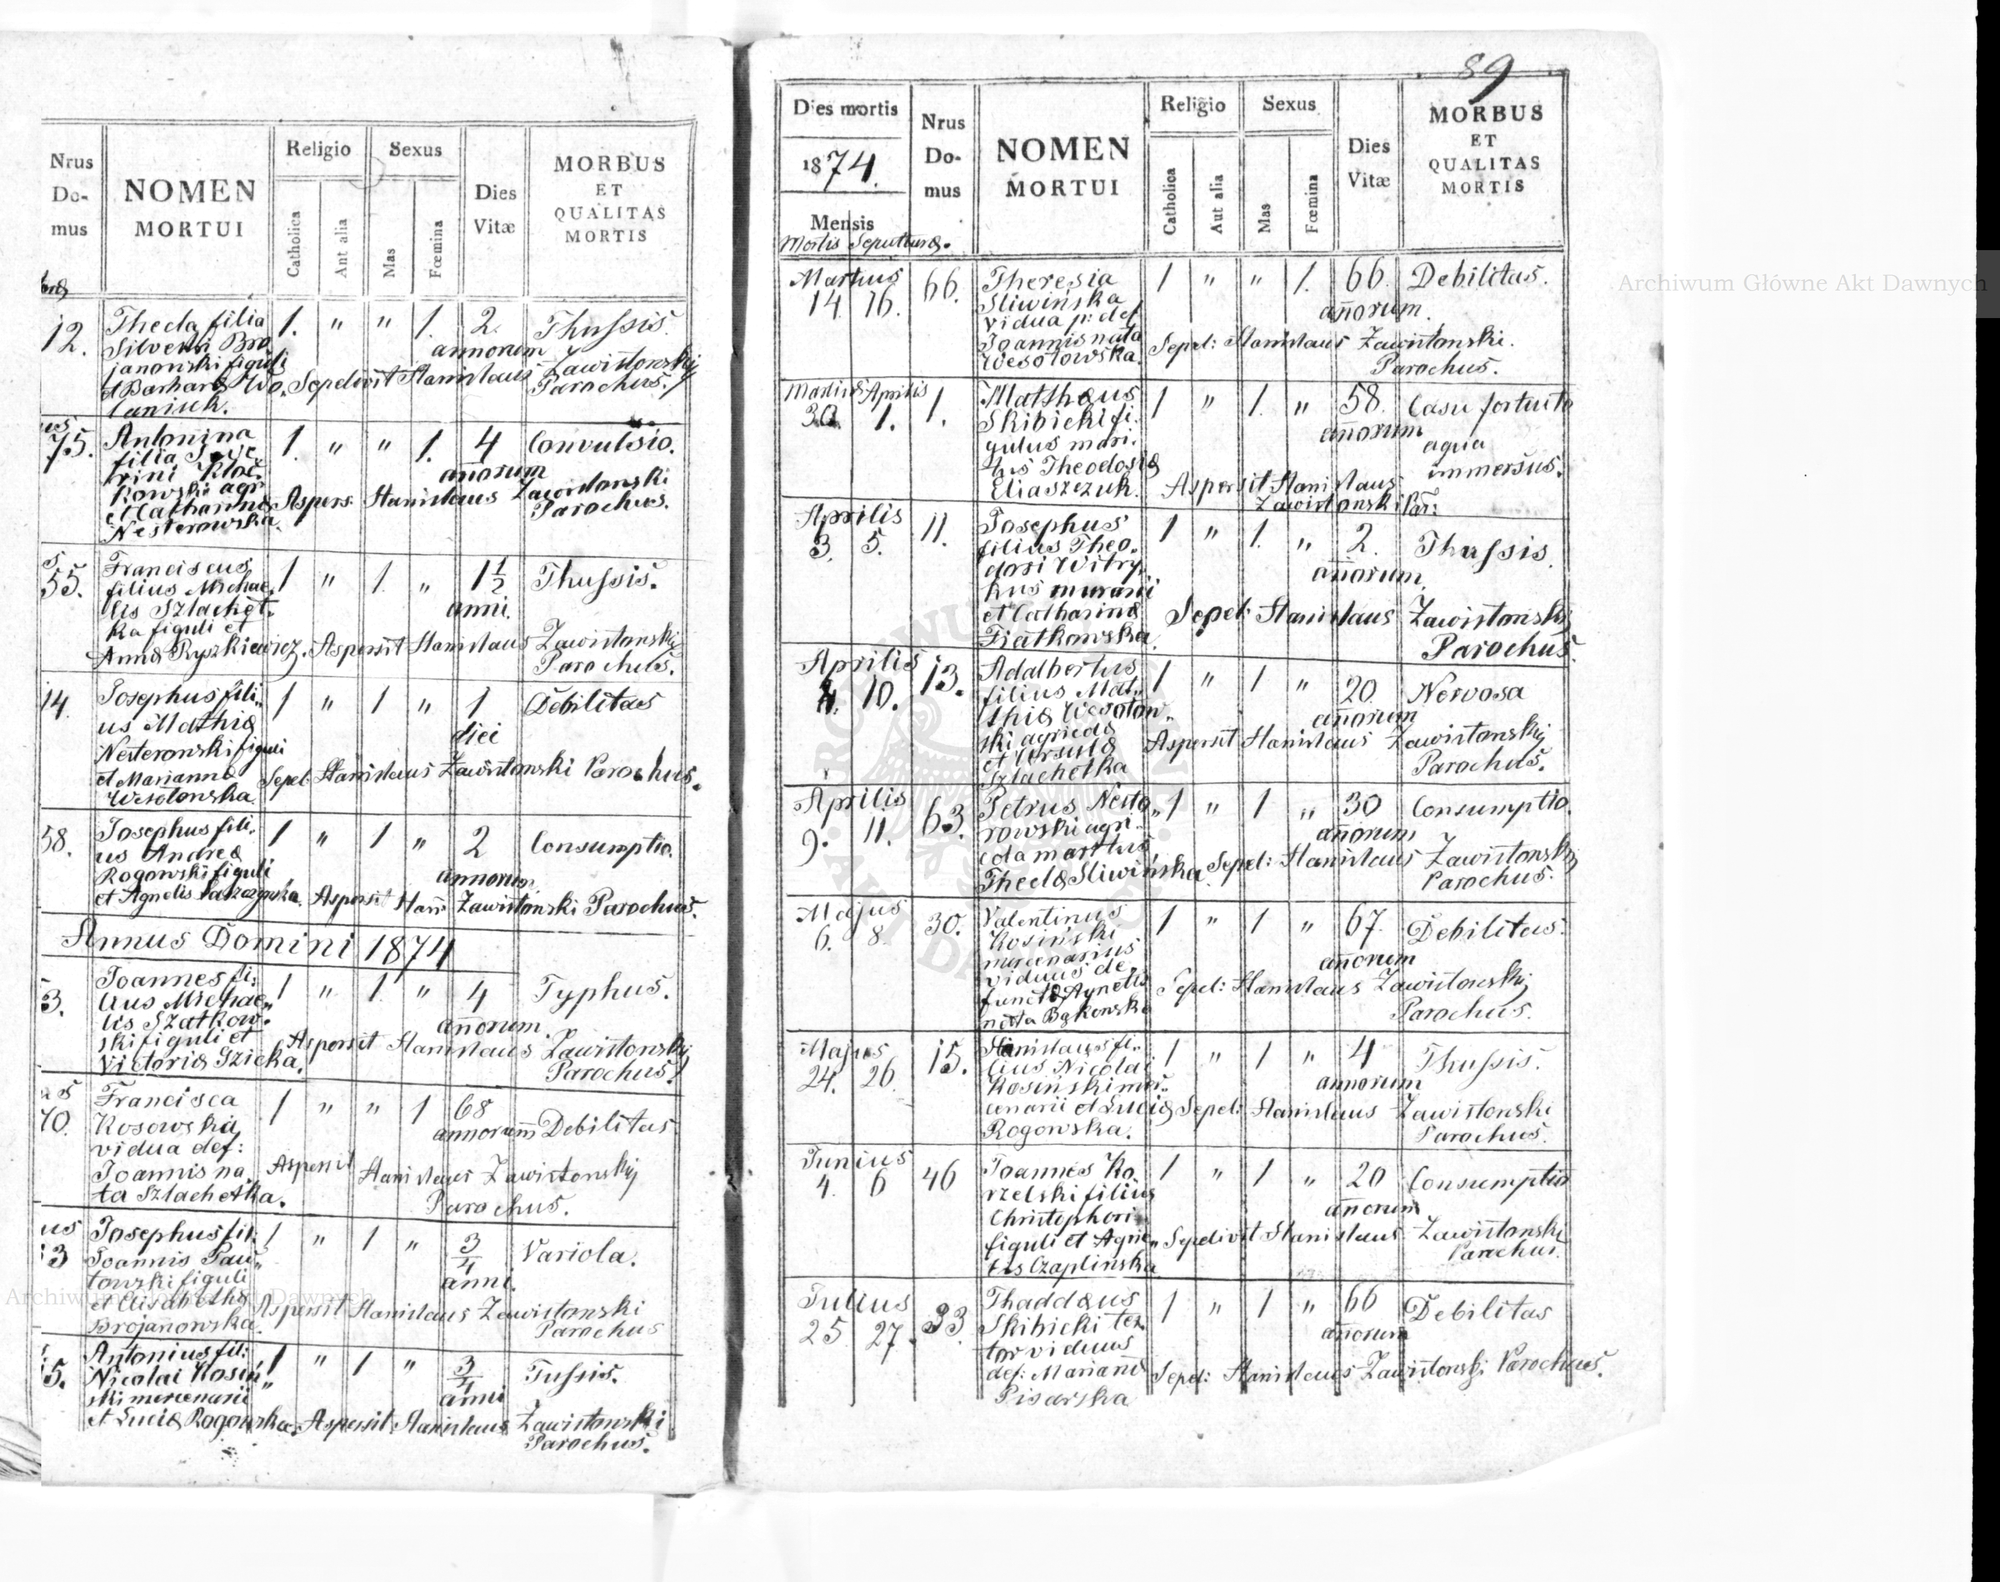 Nrus Domus
NOMEN MORTUI
Religio
Catholica
Aut alia
Sexus
Mas
Fœmina
Dies Vitæ
MORBUS ET QUALITAS MORTIS
12. Thecla filia 1. " " 1. 2. Thussis.
Silvestri Bro
janowski figuli annorum
et Barbara Wo. Sepelivit Stanislaus Zawistowskij
laniuk. Parochus.
75. Antonina 1. " " 1. 4 Convulsio.
filia
rini annorum
kowski agri
et Catharinæ Aspers. Stanislaus Zawistowski
Nesterowska Parochus.
55. Franciscus 1 " 1. " 1 1/2 Thussis.
filius Michae
lis Szlachet. anni.
ka figuli et
Annæ Ryszkiewicz. Aspersit Stanislaus Zawistowskij
Parochus.
14. Josephus fili 1 " 1 " 1 Debilitas
us Mathiæ diei
Nesterowski figuli
et Mariannæ Sepel. Stanislaus Zawistowski Parochus.
Wesołowska.
58. Josephus fili. 1 " 1 " 2 Consumptio.
us Andreæ
Rogowski figuli annorum.
et Agnetis Aspersit Stan Zawistowski Parochus.
Annus Domini 1874
3. Joannes fi: 1 " 1. " 4 Typhus.
lius Michae„
lis Szatkow. annorum.
ski figuli et
Victoriæ Szicka. Aspersit Stanislaus Zawistowskij
Parochus.
70. Francisca 1 " " 1 68
Kosowska annorum Debilitas
vidua def:
Joannis na Aspersit Stanislaus Zawistowskij
ta Szlachetka. Parochus.
3 Josephus fil: 1 " 1 " 3/4 Variola.
Joannis Paw„
łowski figuli anni.
et Elisabethæ Aspersit Stanislaus Zawistowski
Brojanowska. Parochus
5. Antonius fil: 1 " 1 " 3/4 Tussis.
Nicolai Kosiń„
ski mercenarii anni
et Luciæ Rogowska. Aspersit Stanislaus Zawistowski
Parochus.
89
Dies mortis
1874.
Mensis
Mortis Sepulturæ.
Nrus Domus
NOMEN MORTUI
Religio
Catholica
Aut alia
Sexus
Mas
Fœmina
Dies Vitæ
MORBUS ET QUALITAS MORTIS
Martius 66. Theresia 1 " " 1. 66 Debilitas.
14. 16. Sliwińska annorum.
vidua p: def
Joannis nata Sepel: Stanislaus Zawistowski.
Wesołowska. Parochus.
Martius Aprilis Matthæus 1 " 1. " 58. Casu fortuito
30. 1. 1. Skibicki fi. annorum aqua
gulus mari. immersus.
tus Theodosiæ
Eliaszczuk. Aspersit Stanislaus
Zawistowski Par:
Aprilis 11. Josephus 1 " 1. " 2. Thussis.
3. 5. filius Theo.
dori Witry annorum
kus murarii
et Catharinæ Sepel: Stanislaus Zawistowskij
Fiatkowska. Parochus.
Aprilis 13. Adalbertus 1 " 1 " 20 Nervosa
4. 10. filius Mat.
thiæ Wesołow„ annorum
ski agricolæ
et Ursulæ Aspersit Stanislaus Zawistowskij
Szlachetka Parochus.
Aprilis 63. Petrus Neste„ 1 " 1 " 30 Consumptio.
9. 11. rowski agri. annorum
cola maritus
Theclæ Sliwińska. Sepel: Stanislaus Zawistowskij
Parochus.
Majus 30. Valentinus 1 " 1 " 67. Debilitas.
6. 8. Kosiński
mercenarius annorum
viduus de„
functæ Agnetis Sepel: Stanislaus Zawistowskij
nata Bąkowska Parochus.
Majus 15. Stanislaus fi. 1 " 1 " 4 Thussis.
24. 26. lius Nicolai
Kosiński mer„ annorum
cenarii et Luciæ Sepel: Stanislaus Zawistowski
Rogowska. Parochus.
Junius 46 Joannes Ko 1 " 1 " 20 Consumptio
4. 6 rzelski filius
Christophori annorum
figuli et Agne„ Sepelivit Stanislaus Zawistowski
tis Czaplinska Parochus.
Julius 33. Thaddæus 1 " 1 " 66 Debilitas
25 27. Skibicki tex
tor viduus annorum
def: Mariannæ Sepel: Stanislaus Zawistowski Parochus.
Pisarska
Archiwum Główne Akt Dawnych
Archiwum Główne Akt Dawnych